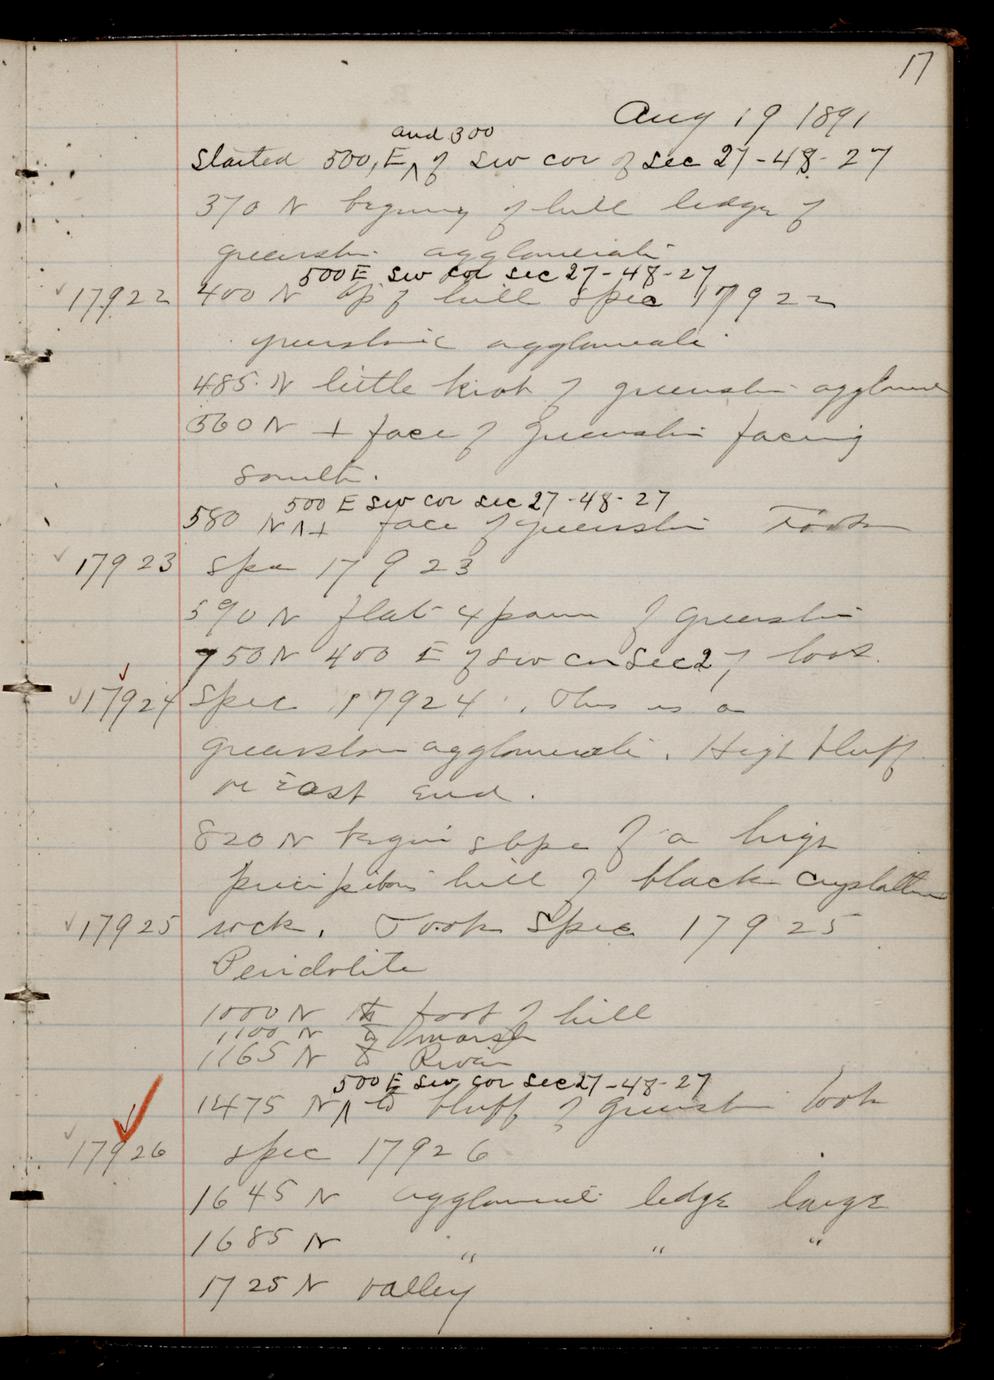 17
Aug 19 1891
and 300
Started 500, E ^ of SW cor of sec 27-48-27
370 N begining of hill ledge of
greenston agglomerati
500 E SW cor sec 27-48-27
17922 400 N top of hill spec 17922
greenstone agglomerati
485 N little knob of greenston agglome
560 N + face of Greenston facing
south.
500 E SW cor sec 27-48-27
580 N ^ + face of greenston Took
17923 spec 17923
590 N flat of greenston
750 N 400 E of SW cor Sec 27 took
17924 Spec 17924. This is a
greenston agglomerati. High bluff
on East End.
820 N begin slope of a high
precipitous hill of black crystalline
17925 rock. Took Spec 17925
Peridolite
1000 N to foot of hill
1100 N to marsh
1165 N to River
500 E SW cor sec 27-48-27
1475 N ^ to bluff of greenston took
17926 spec 17926
1645 N agglomerate ledge large
1685 N " " "
1725 N valley